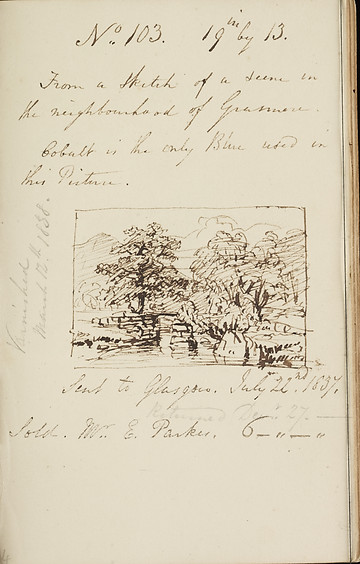 No. 103. 19 in by 13.
From a sketch of a scene in
the neighbourhood of Grasmere.
Cobalt is the only Blue used in
this Picture.
Varnished
March 12th 1838.
Sent to Glasgow. July 22nd 1837.
Returned Decr. 27.
Sold. Mr. E. Parker. 6 – " – "